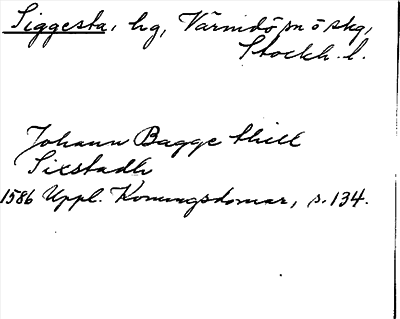 Siggesta, hg, Värmdö sn ö skg,
Stockh. l.
Johann Bagge thill
Sixstadh
1586 Uppl. Konungsdomar, s. 134.